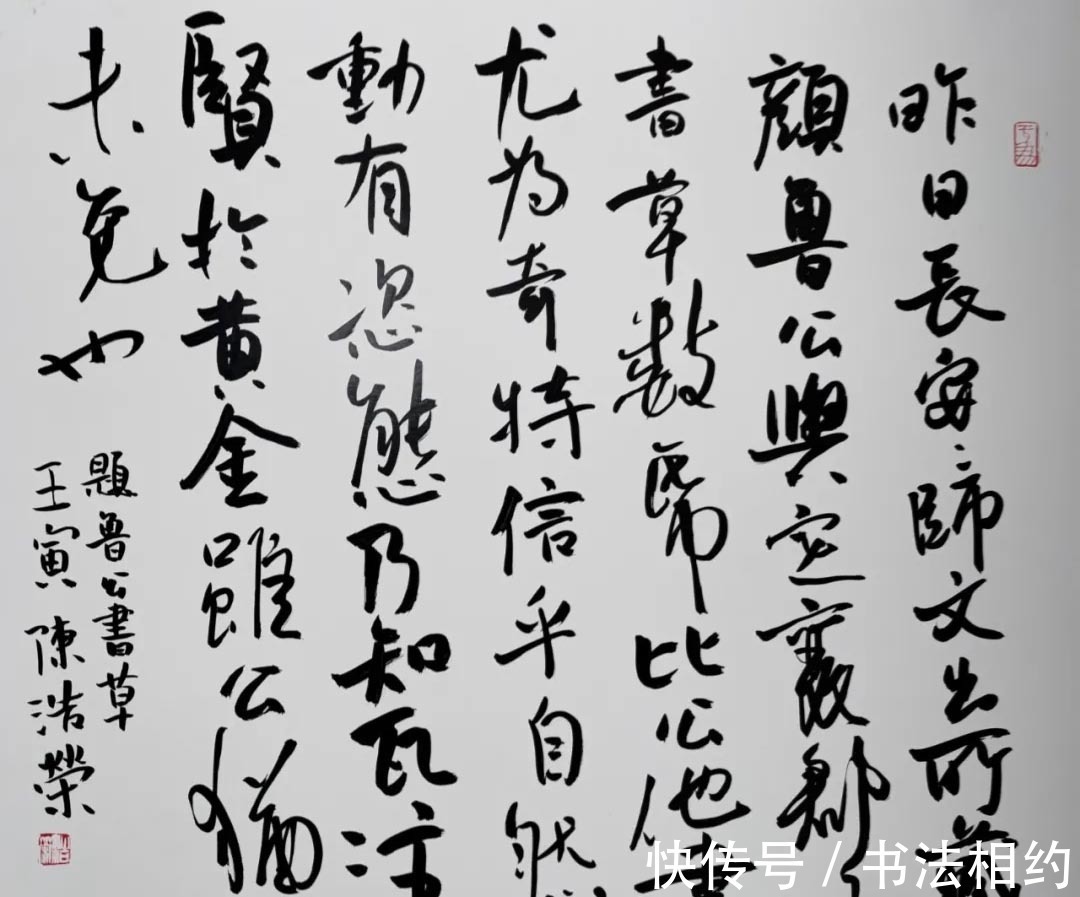 昨日長安〻師文出所藏
顏魯公與定襄郡
書草數帋比公他書
尤為奇特信乎自然
動有恣態乃知瓦注
賢於黃金雖公猶
未免也
題魯公書草
壬寅陳浩榮
快传号 / 书法相约